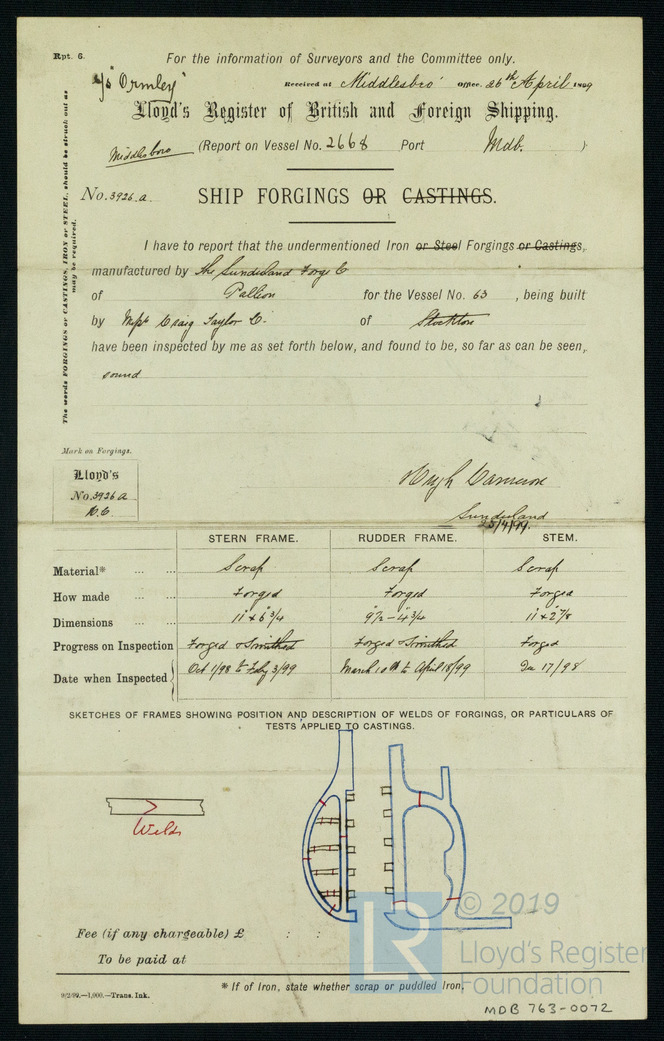 Rpt. 6.
For the information of Surveyors and the Committee only.
"Ormley"
Received at Middlesbro' Office. 26th April 1899
Lloyd's Register of British and Foreign Shipping.
Middlesboro (Report on Vessel No. 2668 Port Mdb. )
No. 3926.a.
SHIP FORGINGS OR CASTINGS.
The words FORGINGS or CASTINGS, IRON or STEEL, should be struck out as
may be required.
I have to report that the undermentioned Iron or Steel Forgings or Castings,
manufactured by The Sunderland Forge Co
of Pallion for the Vessel No. 63 , being built
by Craig Taylor Co. of Stockton
have been inspected by me as set forth below, and found to be, so far as can be seen,
sound
Mark on Forgings.
Lloyd's
No. 3926 a
Hugh Cameron
Sunderland
25/4/99.
STERN FRAME. RUDDER FRAME. STEM.
Material* ... ... Scrap Scrap Scrap
How made ... ... Forged Forged Forged
Dimensions ... ... 11" x 6 3/4 9 1/2 - 4 3/4 11" x 2 7/8
Progress on Inspection Forged & Smithed Forged & Smithed Forged
Date when Inspected Oct 1/98 to Feby 3/99 March 10th to April 18/99 Dec 17/98
SKETCHES OF FRAMES SHOWING POSITION AND DESCRIPTION OF WELDS OF FORGINGS, OR PARTICULARS OF
TESTS APPLIED TO CASTINGS.
Welds
© 2019
LR
Lloyd's Register
Foundation
Fee (if any chargeable) £ : :
To be paid at
* If of Iron, state whether scrap or puddled Iron.
9/2/99.—1,000.—Trans. Ink.
MDB 763-0072